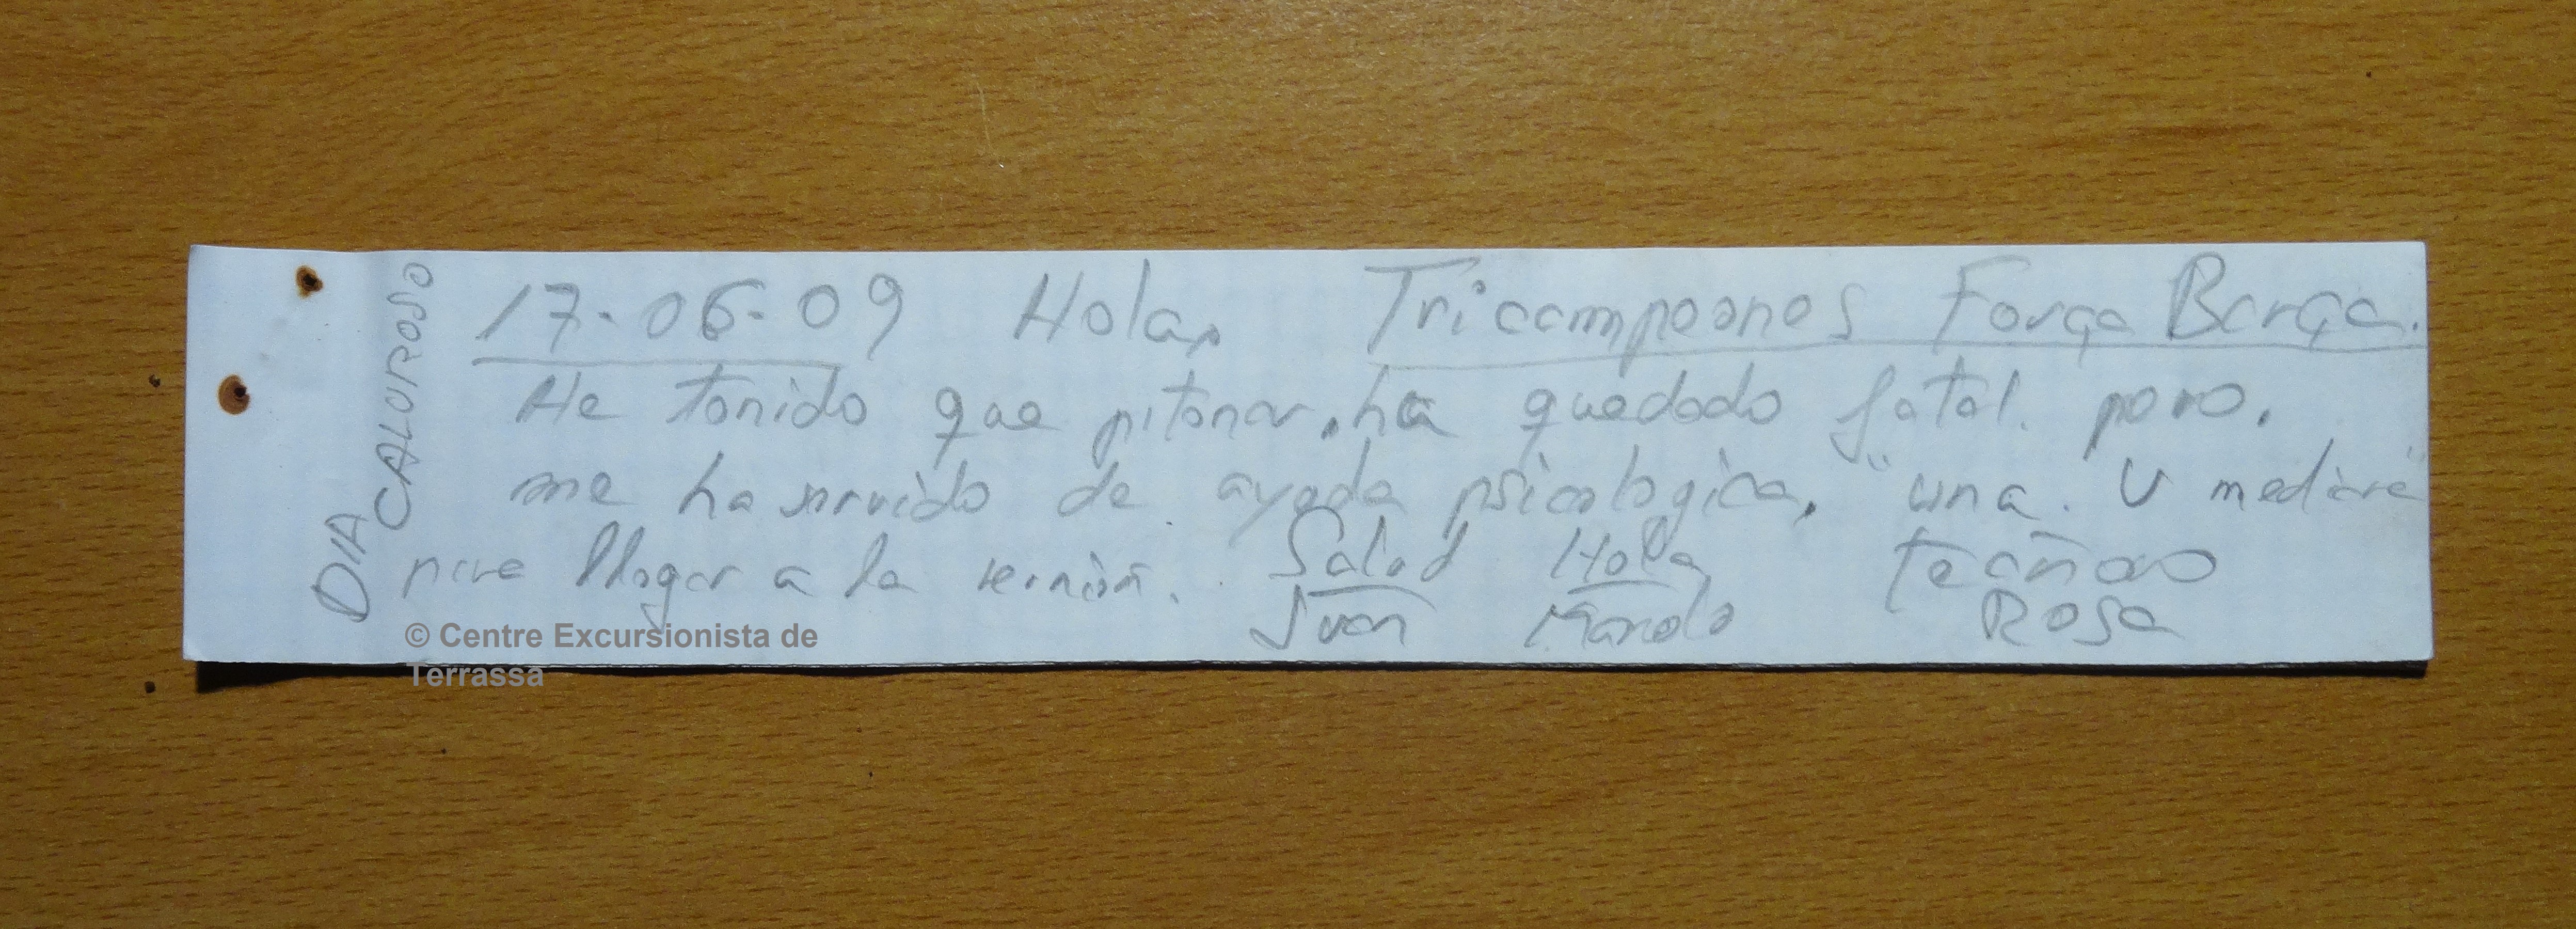 DIA CALUROSO
17-06-09 Hola, Tricampeones Força Barça.
He tenido que pitonar, ha quedado fatal. pero.
me ha servido de ayuda psicologica, "una. V mediere"
para llegar a la reunión. Salud Hola te añoro
Juan Manolo Rosa
© Centre Excursionista de
Terrassa